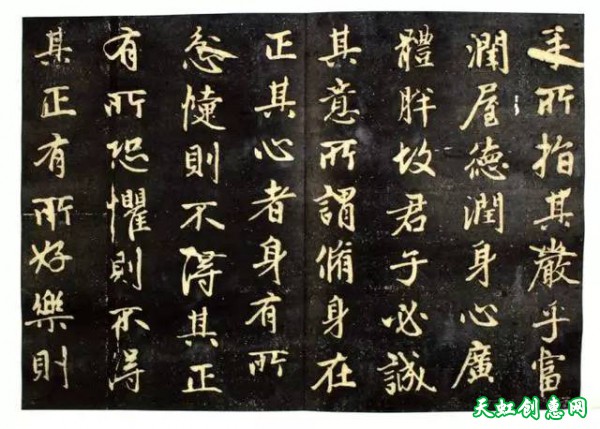 手所指其嚴乎富
潤屋德潤身心廣
體胖故君子必誠
其意所謂脩身在
正其心者身有所
忿懥則不得其正
有所恐懼則不得
其正有所好樂則
天虹创惠网